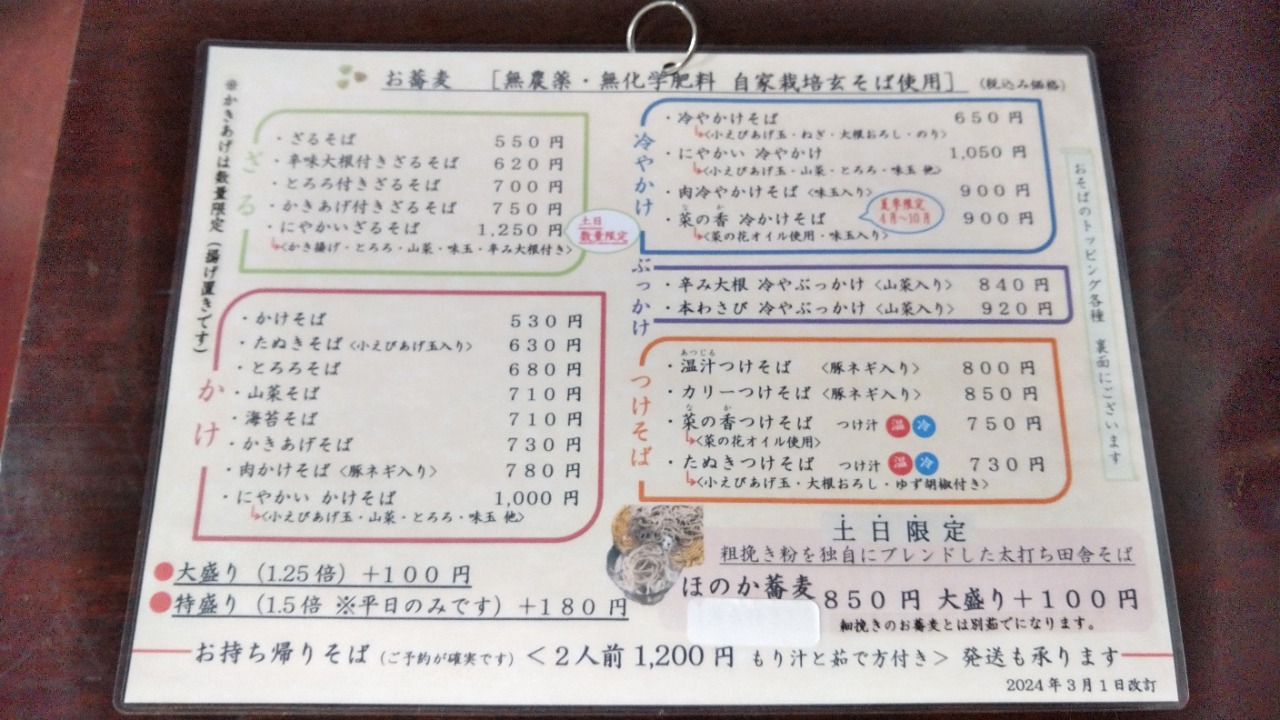 お蕎麦 [無農薬・無化学肥料 自家栽培玄そば使用] (税込み価格)
※かきあげは数量限定(揚げ置きです)
ざる
・ざるそば 550円
・辛味大根付きざるそば 620円
・とろろ付きざるそば 700円
・かきあげ付きざるそば 750円
・にやかいざるそば 1,250円
<かき揚げ・とろろ・山菜・味玉・辛み大根付き>
土日
数量限定
かけ
・かけそば 530円
・たぬきそば<小えびあげ玉入り> 630円
・とろろそば 680円
・山菜そば 710円
・海苔そば 710円
・かきあげそば 730円
・肉かけそば<豚ネギ入り> 780円
・にやかい かけそば 1,000円
<小えびあげ玉・山菜・とろろ・味玉 他>
冷やかけ
・冷やかけそば 650円
<小えびあげ玉・ねぎ・大根おろし・のり>
・にやかい 冷やかけ 1,050円
<小えびあげ玉・山菜・とろろ・味玉 他>
・肉冷やかけそば <味玉入り> 900円
な か
・菜の香 冷かけそば 900円
<菜の花オイル使用・味玉入り>
夏季限定
4月~10月
ぶっかけ
・辛み大根 冷やぶっかけ <山菜入り> 840円
・本わさび 冷やぶっかけ <山菜入り> 920円
つけそば
あつじる
・温汁つけそば <豚ネギ入り> 800円
・カリーつけそば <豚ネギ入り> 850円
な か
・菜の香つけそば つけ汁 温 冷 750円
<菜の花オイル使用>
・たぬきつけそば つけ汁 温 冷 730円
<小えびあげ玉・大根おろし・ゆず胡椒付き>
おそばのトッピング各種 裏面にございます
●大盛り(1.25倍)+100円
●特盛り(1.5倍 ※平日のみです)+180円
土日限定
粗挽き粉を独自にブレンドした太打ち田舎そば
ほのか蕎麦 850円 大盛り+100円
細挽きのお蕎麦とは別茹でになります。
お持ち帰りそば(ご予約が確実です)<2人前1,200円 もり汁と茹で方付き> 発送も承ります
2024年3月1日改訂